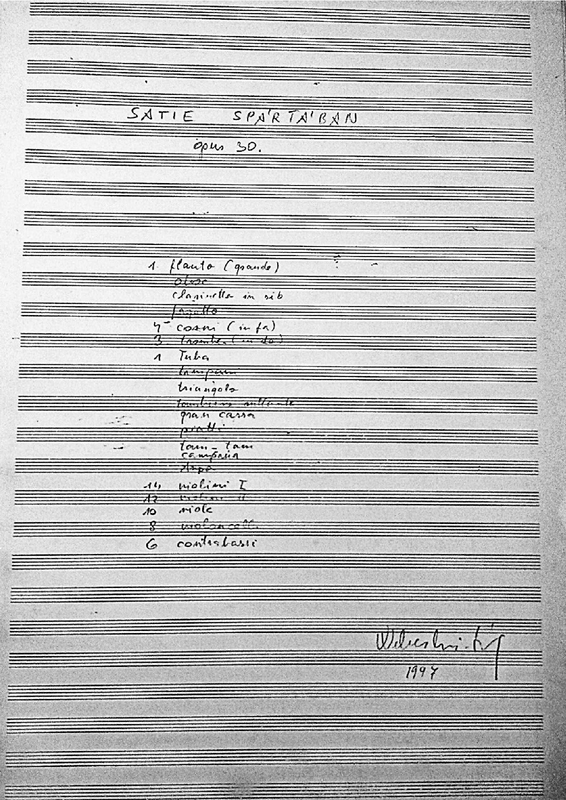 SATIE SPÁRTÁBAN
opus 30.
1 flauto (grande)
oboe
clarinetto in sib
fagotto
4 corni (in fa)
3 trombe (in do)
1 Tuba
timpani
triangolo
tamburo rullante
gran cassa
piatti
tam-tam
campana
arpa
14 violini I
12 violini II
10 viole
8 violoncelli
6 contrabassi
1997